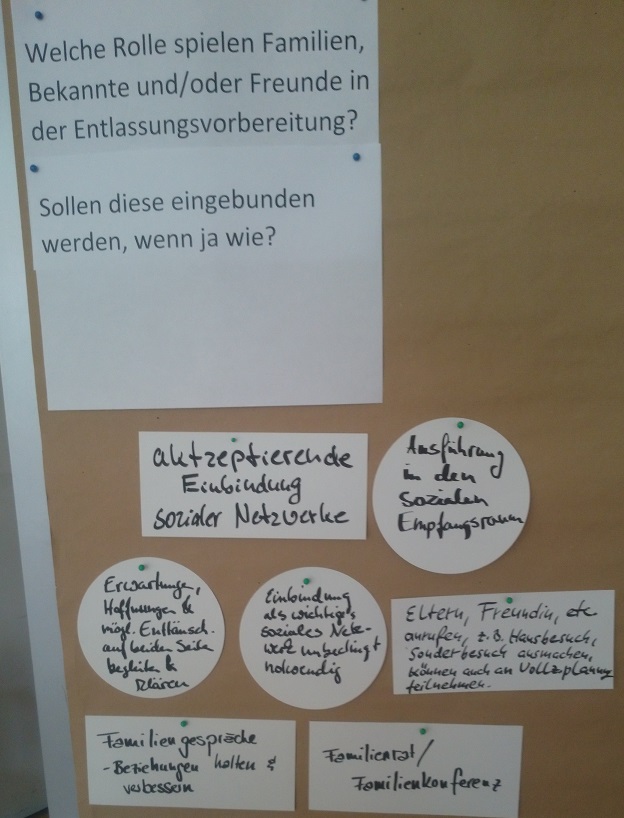 Welche Rolle spielen Familien,
Bekannte und/oder Freunde in
der Entlassungsvorbereitung?
Sollen diese eingebunden
werden, wenn ja wie?
aktzeptierende
Einbindung
sozialer Netzwerke
Ausführung
in den
sozialen
Empfangsraum
Erwartungen,
Hoffnungen &
mögl. Enttäusch.
auf beiden Seiten
begleiten &
klären
Einbindung
als wichtiges
soziales Netz-
werk unbedingt
notwendig
Eltern, Freundin, etc.
anrufen, z.B. Hausbesuch,
Sonderbesuch ausmachen,
können auch an Vollzplanung
teilnehmen.
Familiengespräche
- Beziehungen halten &
verbessern
Familienrat/
Familienkonferenz